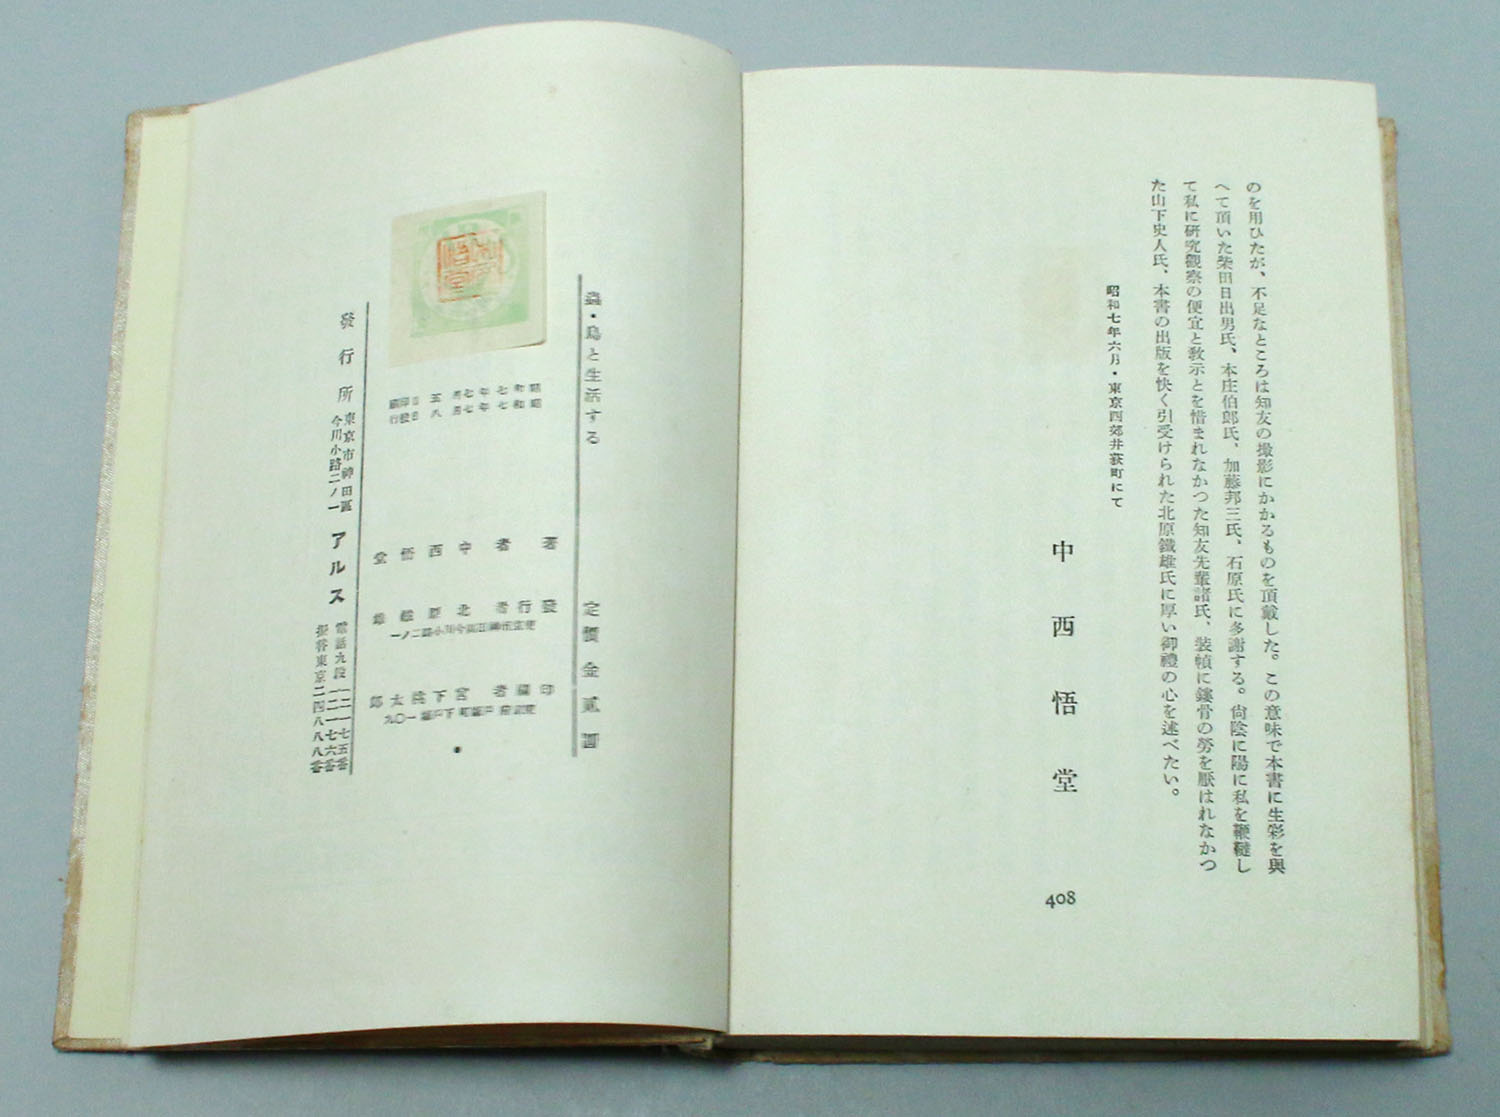 のを用ひたが、不足なところは知友の撮影にかかるものを頂戴した。この意味で本書に生彩を與
へて頂いた柴田日出男氏、本庄伯郎氏、加藤邦三氏、石原氏に多謝する。尙陰に陽に私を鞭韃し
て私に研究觀察の便宜と敎示とを惜まれなかつた知友先輩諸氏、裝幀に鏤骨の勞を厭はれなかつ
た山下史人氏、本書の出版を快く引受けられた北原鐵雄氏に厚い御禮の心を述べたい。
昭和七年六月・東京四郊井荻町にて
中西悟堂
408
蟲・鳥と生活する
定價金貳圓
昭和七年七月五日印刷
昭和七年七月八日發行
著者 中西悟堂
發行者 北原鐵雄
東京市神田區今川小路二ノ一
印刷者 宮下
發行所
東京市神田區
今川小路二ノ一
アルス
電話九段
二一七五番
二一七六番
振替東京二四八八八番